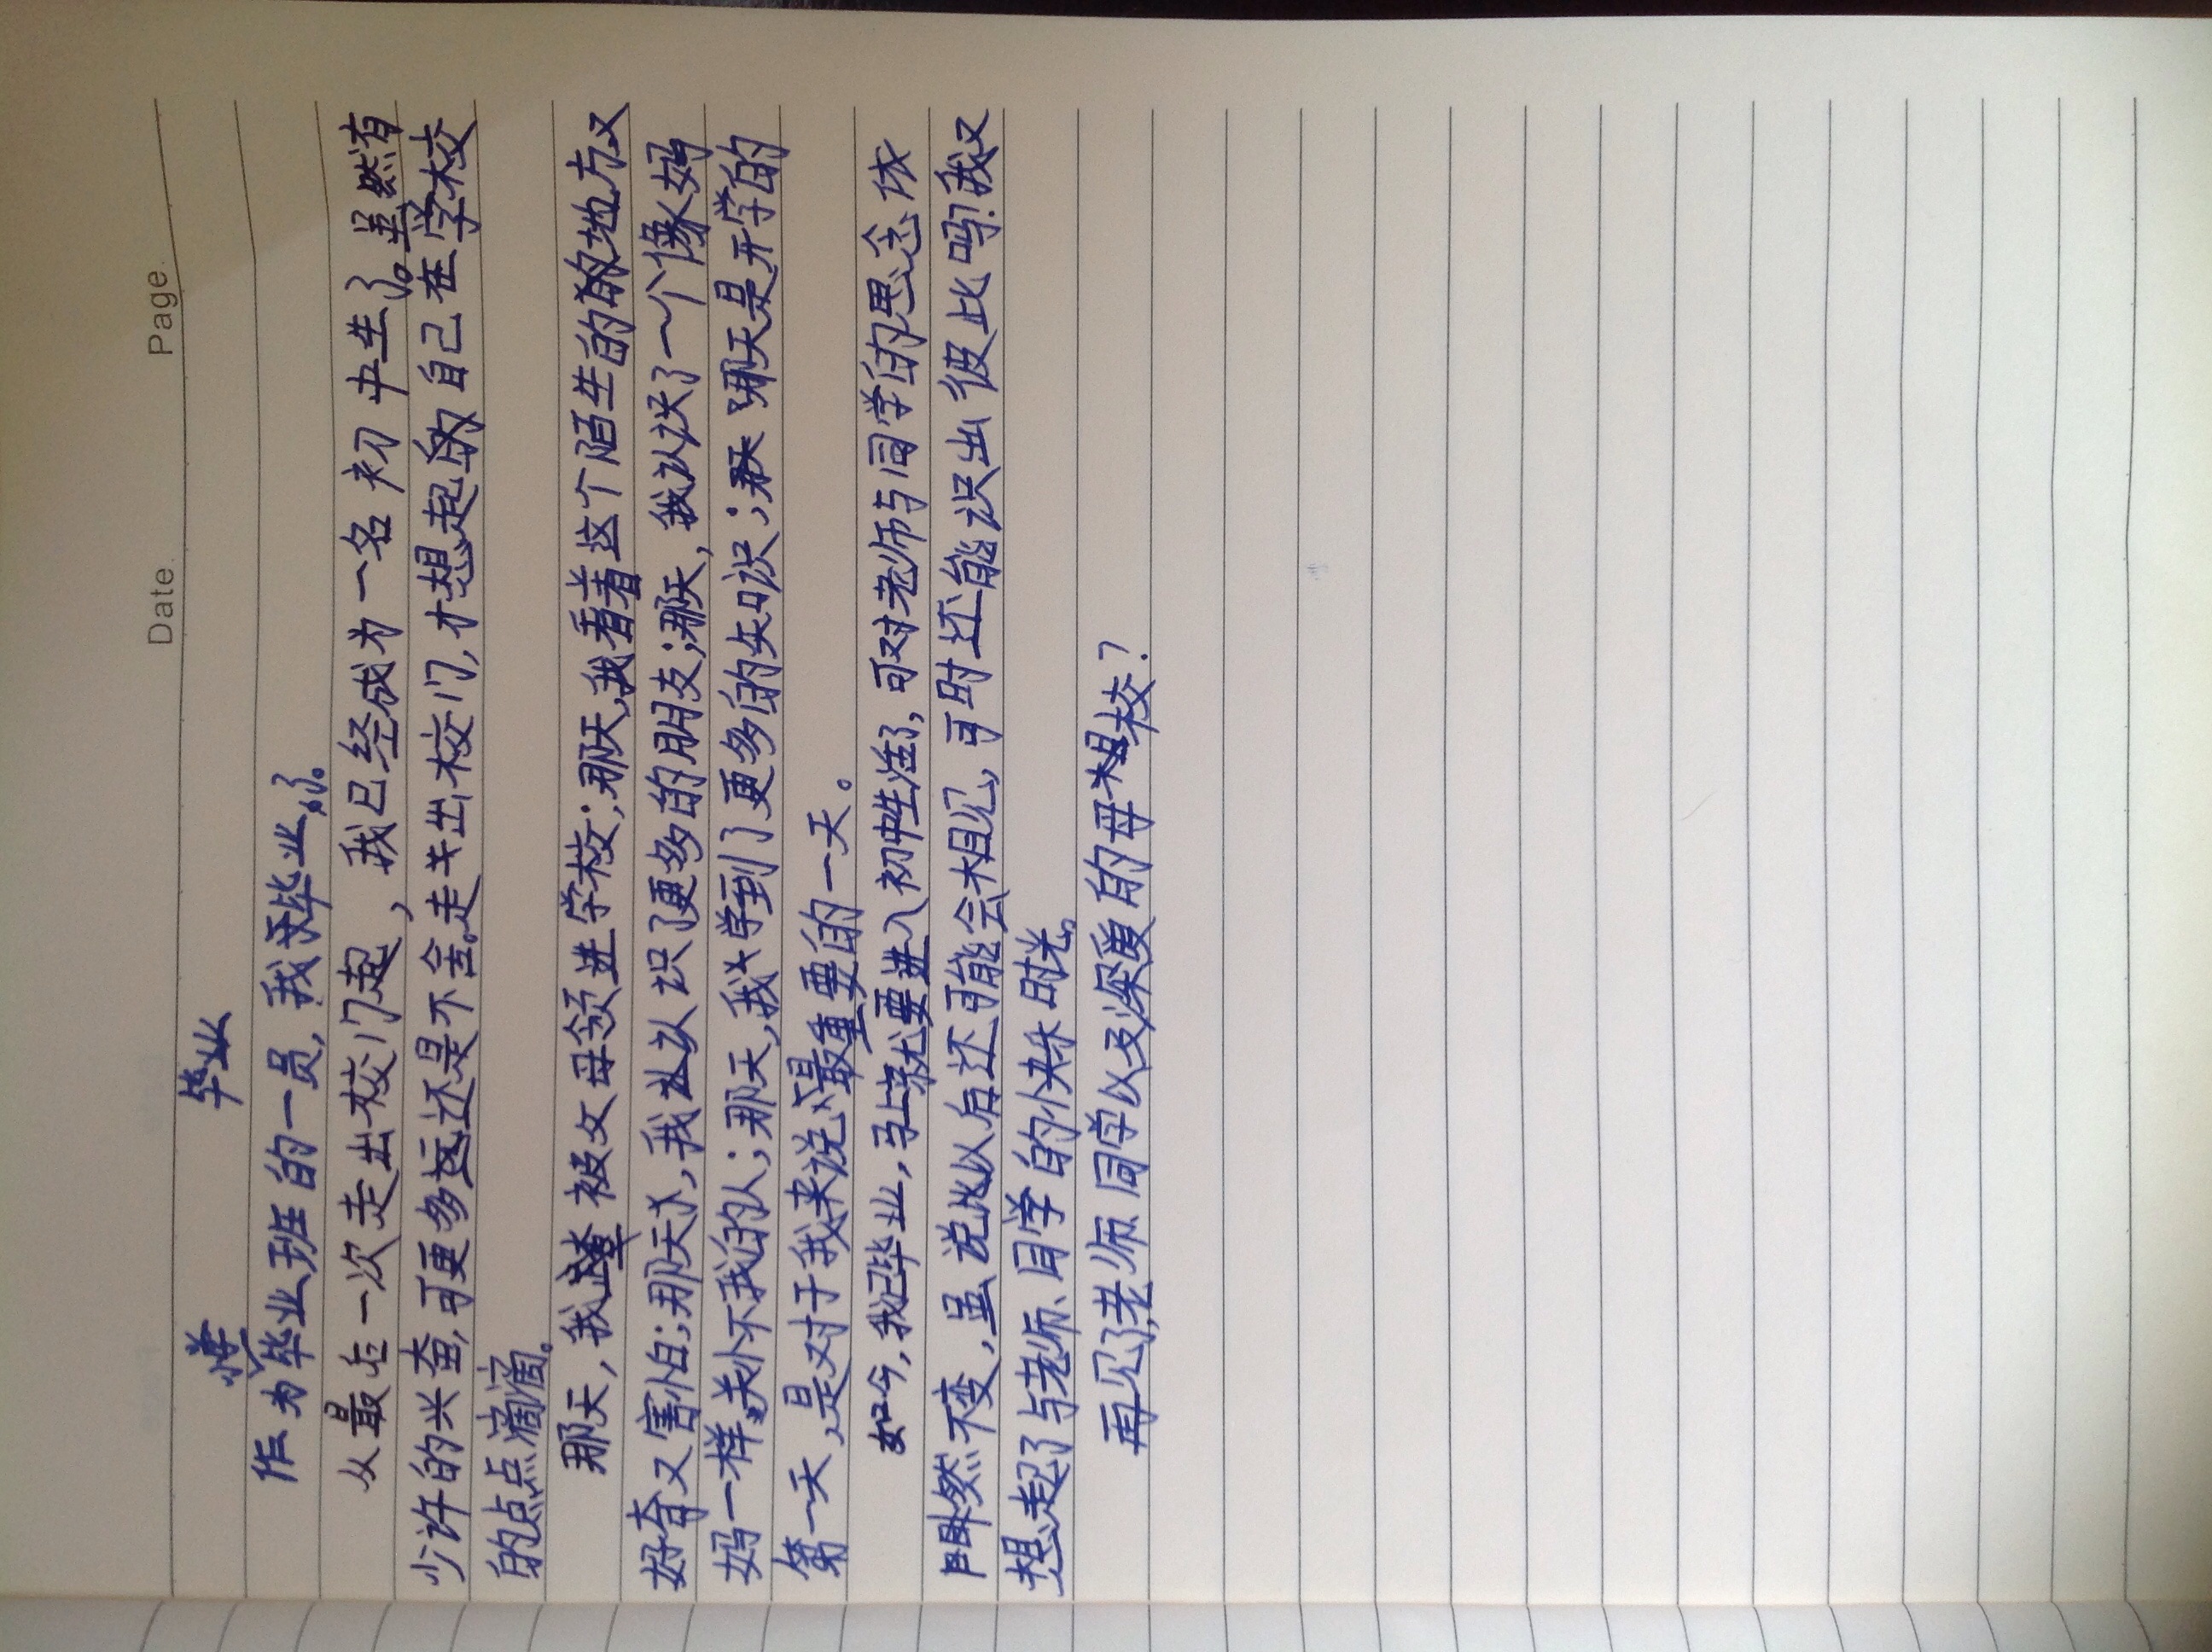 Date. Page.
毕业
作为毕业班的一员，我毕业了。
从最后一次走出校门起，我已经成为一名初中生了。虽然有
少许的兴奋，可更多还是不舍。走出校门，才想起自己在学校
的点点滴滴。
那天，我被父母领进学校；那天，我看着这个陌生的地方又
好奇又害怕；那天，我认识了更多的朋友；那天，我认识了一个像妈
妈一样关怀我的人；那天，我学到了更多的知识；那天是开学的
第一天，是对于我来说最重要的一天。
如今，我已毕业，马上就要进入初中生涯了，可对老师与同学的思念依
然不变，虽说以后还可能会相见，可时还能识出彼此吗？我又
想起了与老师、同学的快乐时光。
再见了，老师同学以及深爱的母校？